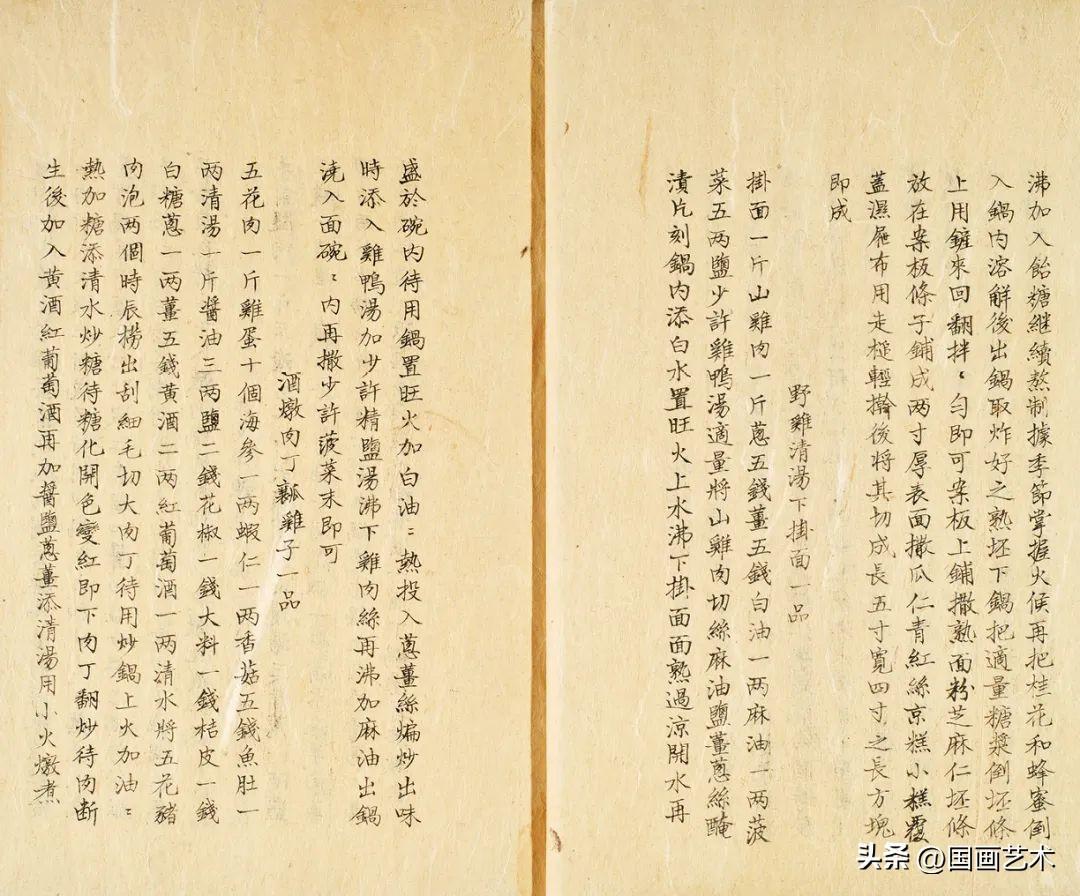 沸加入飴糖继續熬制據季節掌握火候再把桂花和蜂蜜倒
入鍋内溶解後出鍋取炸好之熟坯下鍋把適量糖漿倒坯條
上用鏟來回翻拌〻勻即可案板上鋪撒熟面粉芝麻仁坯條
放在案板條子鋪成两寸厚表面撒瓜仁青紅絲京糕小糕覆
蓋濕屉布用走槌輕擀後將其切成長五寸寬四寸之長方塊
即成
野雞清湯下掛面一品
掛面一斤山雞肉一斤蔥五錢薑五錢白油一两麻油一两菠
菜五两鹽少許雞鴨湯適量將山雞肉切絲麻油鹽薑蔥絲醃
漬片刻鍋内添白水置旺火上水沸下掛面面熟過涼開水再
盛於碗内待用鍋置旺火加白油〻熱投入蔥薑絲煸炒出味
時添入雞鴨湯加少許精鹽湯沸下雞肉絲再沸加麻油出鍋
澆入面碗〻内再撒少許菠菜末即可
酒燉肉丁瓤雞子一品
五花肉一斤雞蛋十個海參一两蝦仁一两香菇五錢魚肚一
两清湯一斤醬油三两鹽二錢花椒一錢大料一錢桔皮一錢
白糖蔥一两薑五錢黄酒二两紅葡萄酒一两清水將五花豬
肉泡两個時辰撈出刮細毛切大肉丁待用炒鍋上火加油〻
熱加糖添清水炒糖待糖化開色變紅即下肉丁翻炒待肉断
生後加入黄酒紅葡萄酒再加醬鹽蔥薑添清湯用小火燉煮
头条 @国画艺术